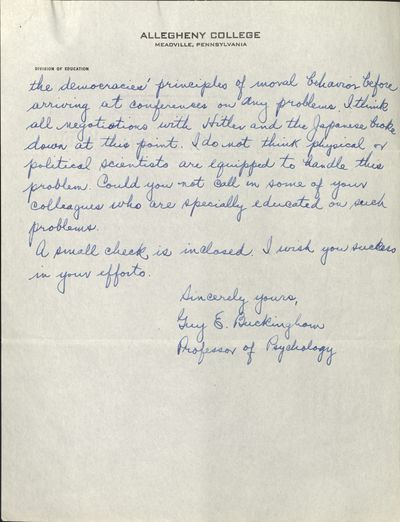 ALLEGHENY COLLEGE
MEADVILLE, PENNSYLVANIA
DIVISION OF EDUCATION
the democracies' principles of moral behavior before
arriving at conferences on any problems. I think
all negotiations with Hitler and the Japanese broke
down at this point. I do not think physical or
political scientists are equipped to handle this
problem. Could you not call in some of your
colleagues who are specially educated on such
problems.
A small check is inclosed. I wish you success
in your efforts.
Sincerely yours,
Guy E. Buckingham
Professor of Psychology